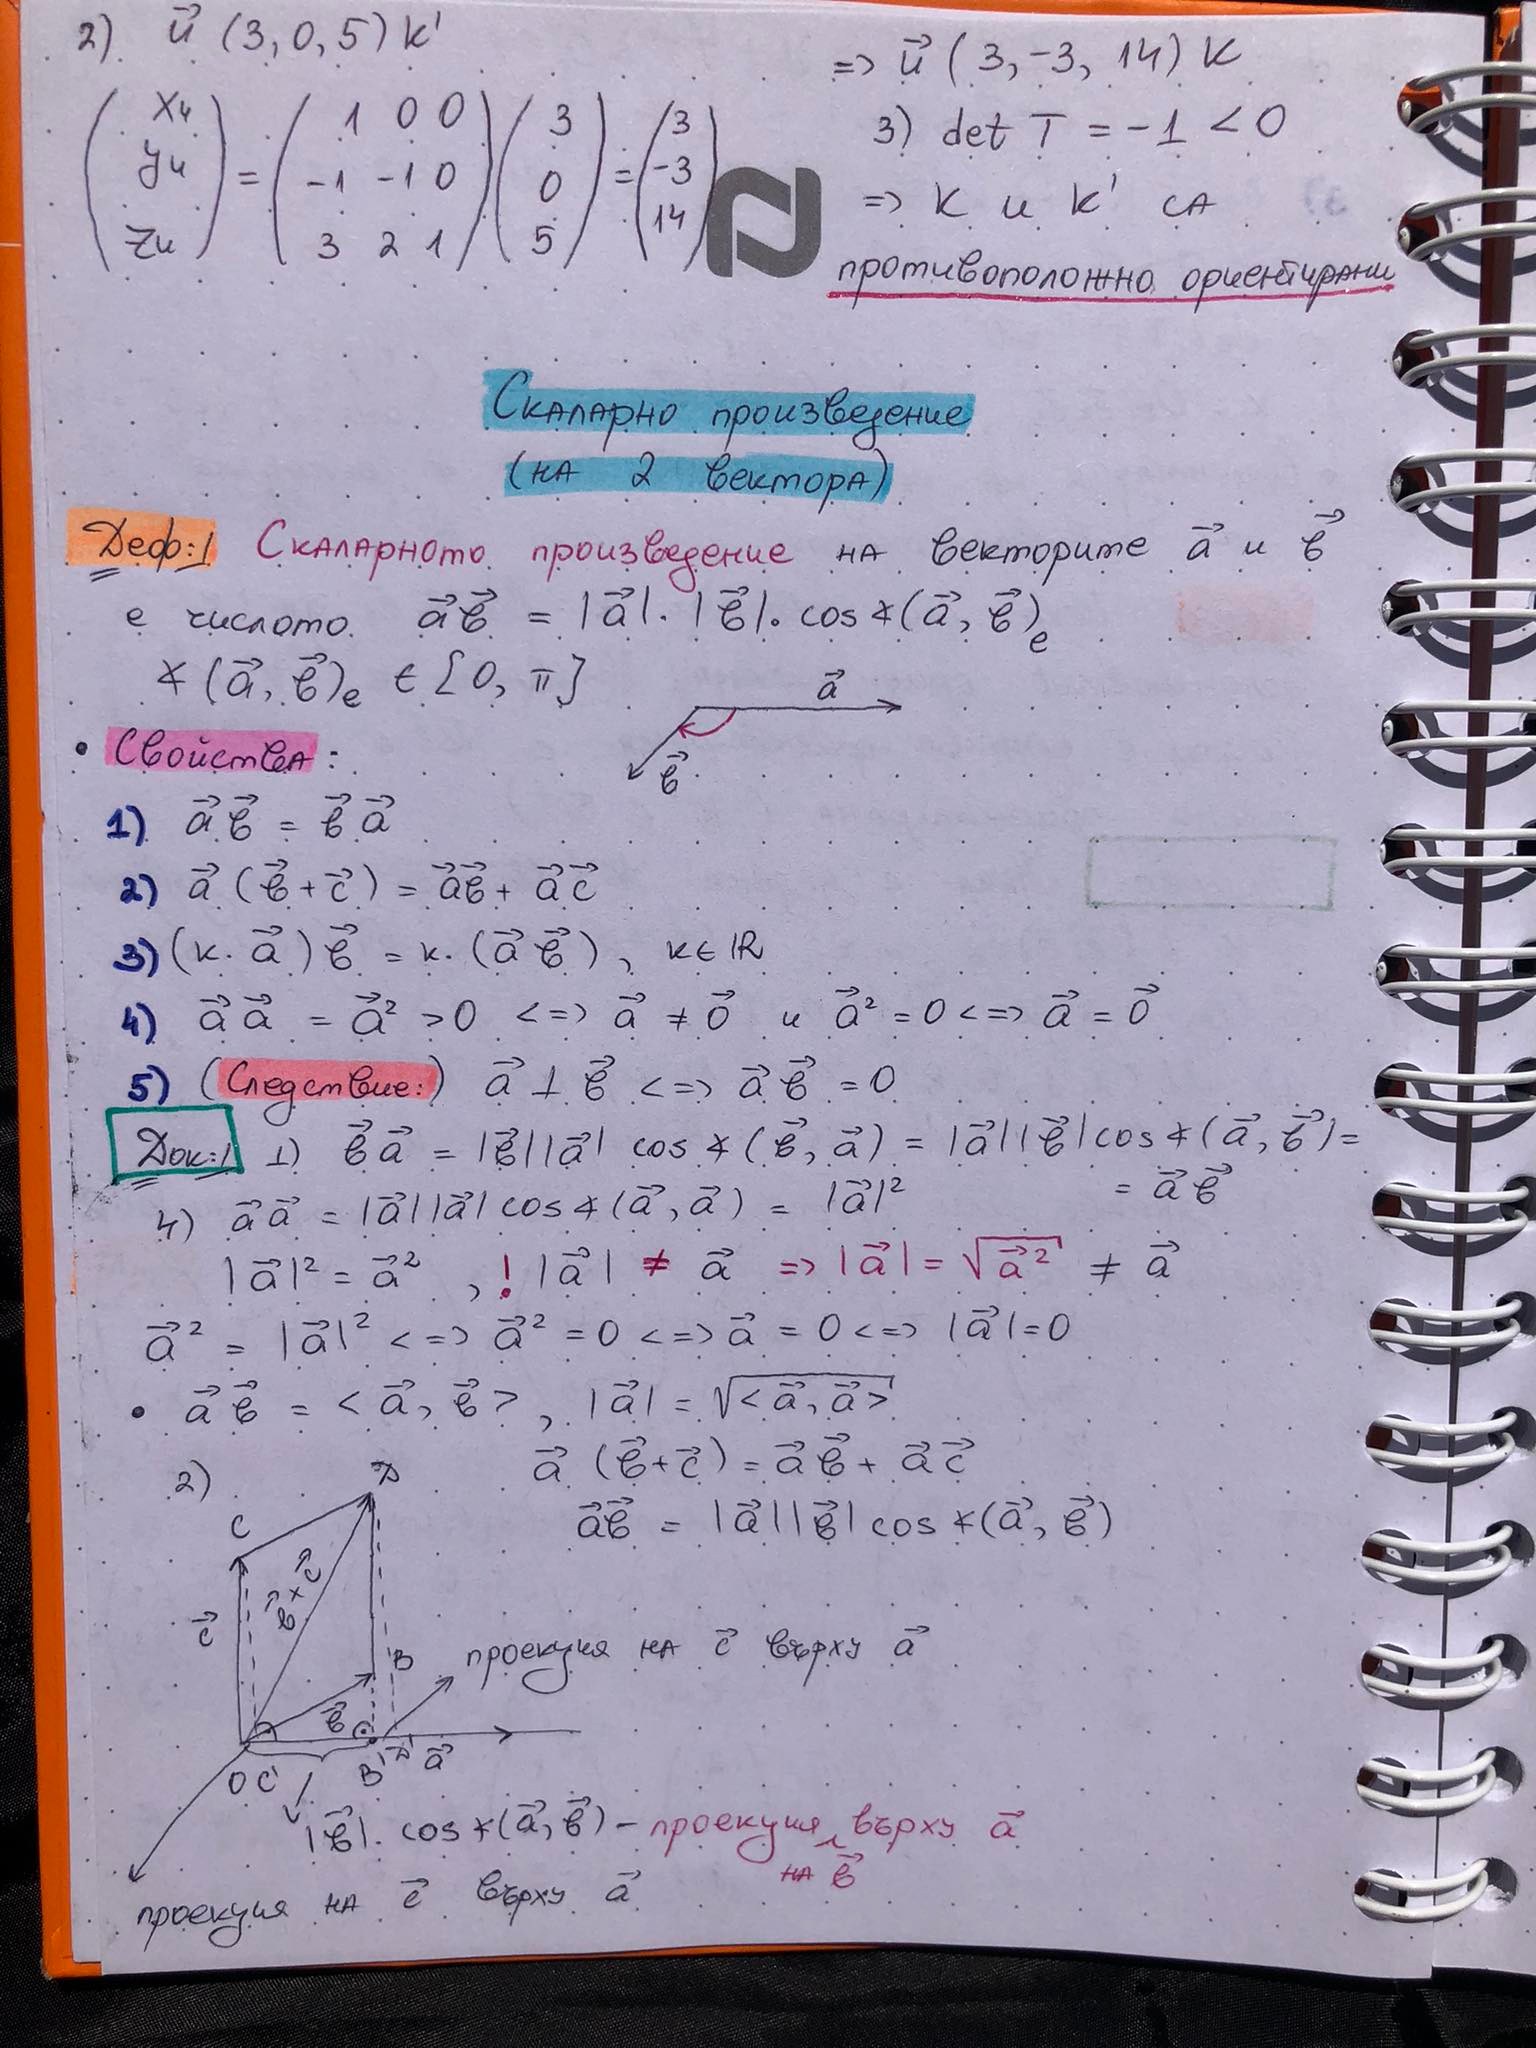 2) u⃗ (3, 0, 5) K'
(xu yu zu) = (1 0 0; -1 -1 0; 3 2 1) (3 0 5) = (3 -3 14)
=> u⃗ (3, -3, 14) K
3) det T = -1 < 0
=> K и K' са
противоположно ориентирани
Скаларно произведение
(на 2 вектора)
Деф:1 Скаларното произведение на векторите a⃗ и b⃗
е числото a⃗b⃗ = |a⃗|.|b⃗|.cos∢(a⃗, b⃗)e
∢(a⃗, b⃗)e ∈ [0, π]
a⃗
b⃗
• Свойства:
1) a⃗b⃗ = b⃗a⃗
2) a⃗(b⃗+c⃗) = a⃗b⃗ + a⃗c⃗
3) (k.a⃗)b⃗ = k.(a⃗b⃗), k∈ℝ
4) a⃗a⃗ = a⃗² > 0 <=> a⃗ ≠ 0⃗ и a⃗² = 0 <=> a⃗ = 0⃗
5) (Следствие:) a⃗ ⊥ b⃗ <=> a⃗b⃗ = 0
Док:1 1) b⃗a⃗ = |b⃗||a⃗| cos∢(b⃗, a⃗) = |a⃗||b⃗|cos∢(a⃗, b⃗) =
= a⃗b⃗
4) a⃗a⃗ = |a⃗||a⃗| cos∢(a⃗, a⃗) = |a⃗|²
|a⃗|² = a⃗² , ! |a⃗| ≠ a⃗ => |a⃗| = √a⃗² ≠ a⃗
a⃗² = |a⃗|² <=> a⃗² = 0 <=> a⃗ = 0 <=> |a⃗| = 0
• a⃗b⃗ = <a⃗, b⃗>, |a⃗| = √<a⃗, a⃗>
2) a⃗(b⃗+c⃗) = a⃗b⃗ + a⃗c⃗
a⃗b⃗ = |a⃗||b⃗|cos∢(a⃗, b⃗)
C D
b⃗+c⃗
c⃗
B проекция на c⃗ върху a⃗
b⃗
O C' B' D' a⃗
|b⃗|.cos∢(a⃗, b⃗) – проекция върху a⃗
на b⃗
проекция на c⃗ върху a⃗